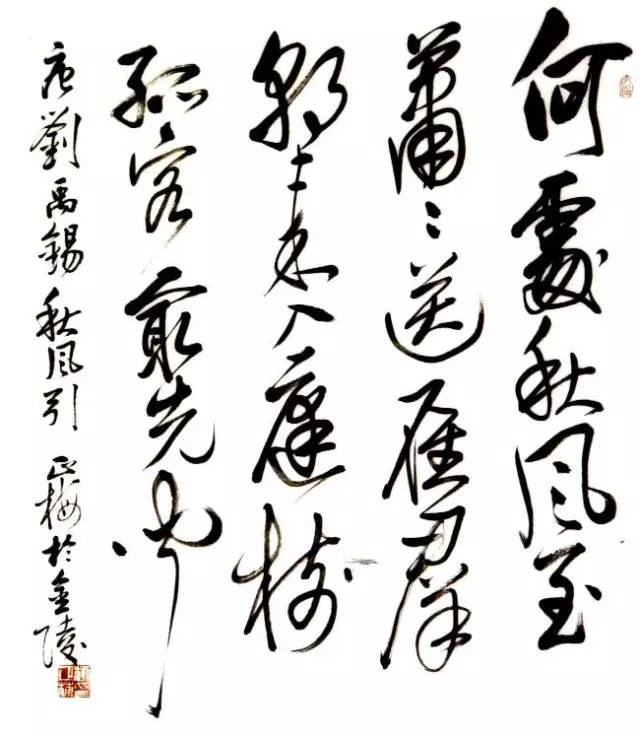 何處秋風至
蕭〻送雁群
朝来入庭樹
孤客最先聞
唐劉禹錫秋風引 正梅於金陵